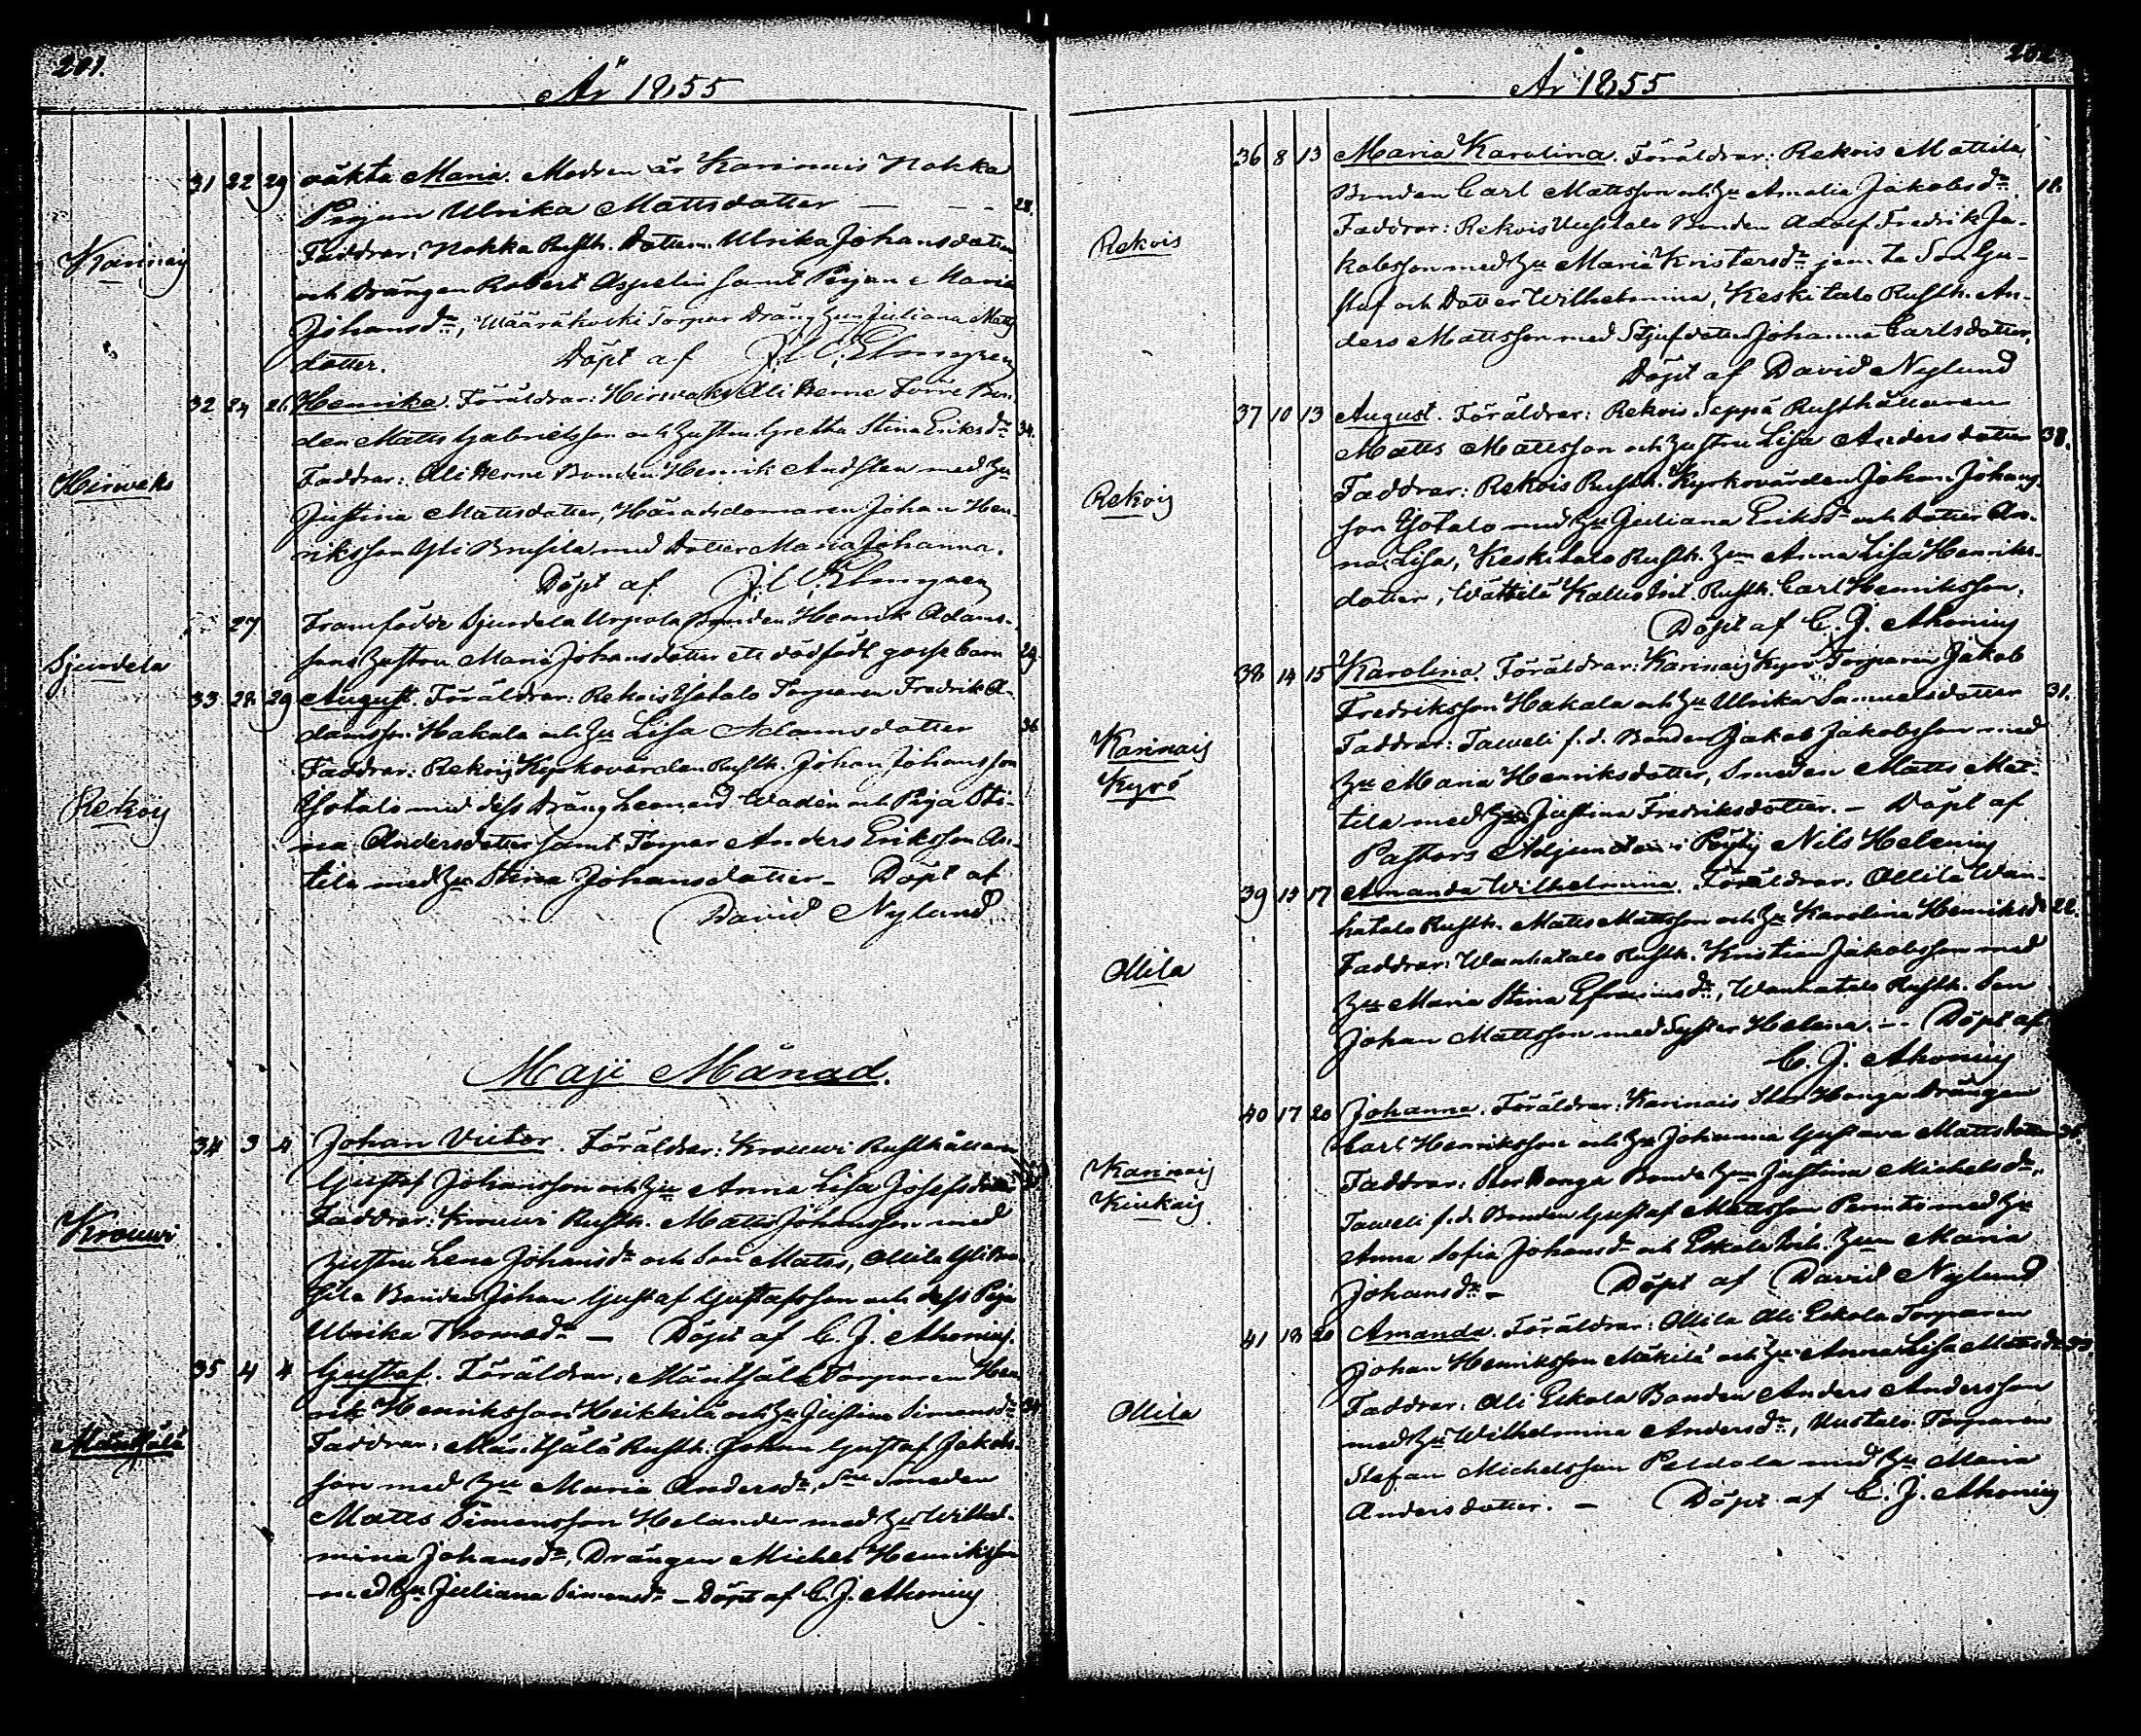 201.
År 1855
Karinais
31 22 29 oäkta Maria. Modren är Karinais Nokka
Pigan Ulrika Mattsdotter — — - 28.
Faddrar: Nokka Rusth. Dottern Ulrika Johansdotter
och Drängen Robert Aspelin samt Pigan Maria
Johansdr, Wääräkoski Torpar Dräng Hu Juliana Matts
dotter. Döpt af
Hirwoks
32 24 26. Henrika. Föräldrar: Hirwoks Ali Herne Förre Bon
den Matts Gabrielsson och Hustru Gretha Stina Eriksdr 34.
Faddrar: Ali Herne Bonden Henrik Andsten med Hu
Justina Mattsdotter, Häradsdomaren Johan Hen-
riksson Yli Brusila med Dotter Maria Johanna.
Döpt af
Sjundela
27 Framfödde Sjundela Urpola Bonden Henrik Adams-
sons Hustru Maria Johansdotter ett dödfödt gosse barn 29.
Rekois
33 28 29 August. Föräldrar: Rekois Isotalo Torparen Fredrik A-
damsson Hakala och Hu Lisa Adamsdotter 36
Faddrar: Rekois Kyrkovärden Rusth. Johan Johansson
Isotalo med dess Dräng Leonard Wadén och Piga Sti-
na Andersdotter samt Torpar Anders Eriksson An-
tila med Hu Stina Johansdotter - Döpt af
David Nylund
Maji Månad.
Krouwi
34 3 4 Johan Victor. Föräldrar: Krouwi Rusthållaren
Gustaf Johansson och Hu Anna Lisa Josefsdotter
Faddrar: Krouwi Rusth. Matts Johansson med
Hustru Lena Johansdr och Son Matts, Ollila Yli
sila Bonden Johan Gustaf Gustafsson och dess Piga
Ulrika Thomasdr — Döpt af C. J. Ahonius.
Mäntsälä
35 4 4 Gustaf. Föräldrar: Mäntsälä Torparen Hen
rik Henriksson Heikkilä och Hu Justina Simonsdr 34.
Faddrar: Mäntsälä Rusth. Johan Gustaf Jakobs-
son med Hu Maria Andersdr, Smeden
Matts Simonsson Helander med Hu Wilhel-
mina Johansdr, Drängen Michel Henriksson
med Hu Juliana Simonsdr — Döpt af C. J. Ahonius
202
År 1855
Rekois
36 8 13 Maria Karolina. Föräldrar: Rekois Mattila
Bonden Carl Mattsson och Hu Amalia Jakobsdr 18.
Faddrar: Rekois Uusitalo Bonden Adolf Fredrik Ja-
kobsson med Hu Maria Kristersdr jemte Son Gu-
staf och Dotter Wilhelmina, Keskitalo Rusth. An-
ders Mattsson med Styfdotter Johanna Carlsdotter.
Döpt af David Nylund
Rekois
37 10 13 August. Föräldrar: Rekois Seppä Rusthållaren
Matts Mattsson och Hustru Lisa Andersdotter 38.
Faddrar: Rekois Rusth. Kyrkovärden Johan Johans-
son Isotalo med Hu Juliana Eriksdr och Dotter An-
na Lisa, Keskitalo Rusth. Hu Anna Lisa Henriks-
dotter, Wättilä Kallio Rusth. Carl Henriksson.
Döpt af C. J. Ahonius
Karinais
Kyrö
38 14 15 Karolina. Föräldrar: Karinais Kyrö Torparen Jakob
Fredriksson Hakala och Hu Ulrika Samuelsdotter 31.
Faddrar: Taweli f. d. Bonden Jakob Jakobsson med
Hu Maria Henriksdotter, Smeden Matts Mat-
tila med Hu Justina Fredriksdotter. — Döpt af
Pastors Adjuncten i Pöytis Nils Helenius
Ollila
39 15 17 Amanda Wilhelmina. Föräldrar: Ollila Wan-
hatalo Rusth. Matts Mattsson och Hu Karolina Henriksdr 22.
Faddrar: Wanhatalo Rusth. Kristian Jakobsson med
Hu Maria Stina Efraimsdr, Wanhatalo Rusth. Son
Johan Mattsson med Syster Helena. — Döpt af
C. J. Ahonius
Karinais
Kiukais
40 17 20 Johanna. Föräldrar: Karinais Stor Honga Drängen
Carl Henriksson och Hu Johanna Gustava Mattsdotter
Faddrar: Stor Honga Bonde Hu Justina Michelsdr,
Taweli f. d. Bonden Gustaf Mattsson Perintö med Hu
Anna Sofia Johansdr och Eskola Hu Maria
Johansdr — Döpt af David Nylund
Ollila
41 18 20 Amanda. Föräldrar: Ollila Ali Eskola Torparen
Johan Henriksson Mäkilä och Hu Anna Lisa Mattsdr
Faddrar: Ali Eskola Bonden Anders Andersson
med Hu Wilhelmina Andersdr, Uustalo Torparen
Stefan Michelsson Peldola med Hu Maria
Andersdotter. — Döpt af C. J. Ahonius